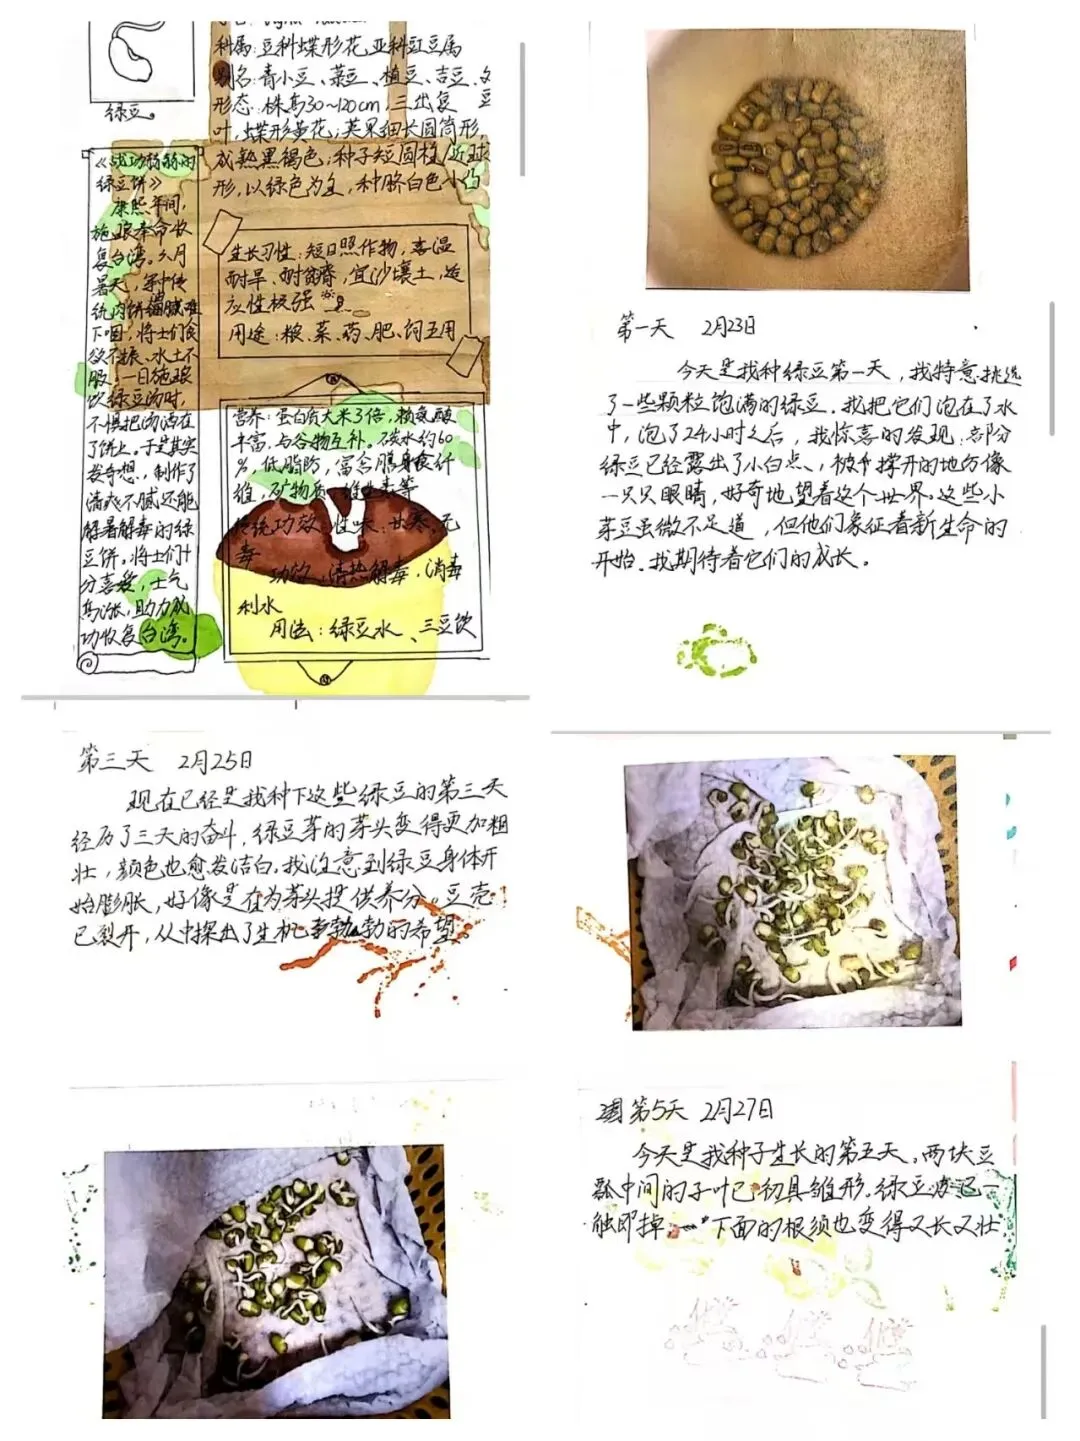 绿豆。
科属:豆科蝶形花亚科豇豆属
别名:青小豆、菉豆、植豆、吉豆、文
豆
形态:株高30~120cm,三出复
叶,蝶形黄花;荚果细长圆筒形,
成熟黑褐色;种子短圆柱/近球
形,以绿色为主,种脐白色
《战功赫赫的
绿豆饼》
康熙年间,
施琅奉命收
复台湾。六月
暑天,军中传
统肉饼油腻难
下咽,将士们食
欲不振、水土不
服。一日施琅
饮绿豆汤时,
不惧把汤洒在
了饼上。于是其突
发奇想,制作了
清爽不腻还能
解暑解毒的绿
豆饼。将士们十
分喜爱,士气
高涨,助力成
功收复台湾。
生长习性:短日照作物,喜温
耐旱、耐贫瘠,宜沙壤土,适
应性极强
用途:粮、菜、药、肥、饲五用
营养:蛋白质大米3倍,赖氨酸
丰富,与谷物互补。碳水约60
%,低脂肪,富含膳食纤
维,矿物质、维生素等
传统功效:性味:甘寒、无
毒
功效:清热解毒、消毒
利水
用法:绿豆水、三豆饮
第一天 2月23日
今天是我种绿豆第一天,我特意挑选
了一些颗粒饱满的绿豆.我把它们泡在了水
中,泡了24小时之后,我惊喜的发现:部分
绿豆已经露出了小白点、,被撑开的地方像
一只只眼睛,好奇地望着这个世界.这些小
芽豆虽微不足道,但他们象征着新生命的
开始.我期待着它们的成长.
第三天 2月25日
现在已经是我种下这些绿豆的第三天
经历了三天的奋斗,绿豆芽的芽头变得更加粗
壮,颜色也愈发洁白.我注意到绿豆身体开
始膨胀,好像是在为芽头提供养分。豆壳
已裂开,从中探出了生机勃勃的希望。
第5天 2月27日
今天是我种子生长的第五天。两块豆
瓢中间的子叶已初具雏形.绿豆皮已一
触即掉,下面的根须也变得又长又壮